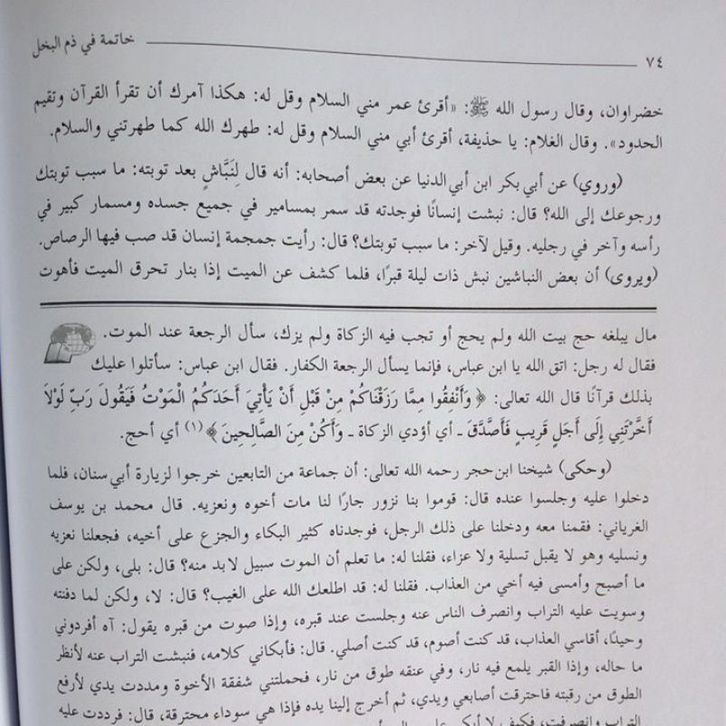 ٧٤ خاتمة في ذم البخل
خضراوان، وقال رسول الله ﷺ: «أقرئ عمر مني السلام وقل له: هكذا آمرك أن تقرأ القرآن وتقيم
الحدود». وقال الغلام: يا حذيفة، أقرئ أبي مني السلام وقل له: طهرك الله كما طهرتني والسلام.
(وروي) عن أبي بكر ابن أبي الدنيا عن بعض أصحابه: أنه قال لِنَبَّاشٍ بعد توبته: ما سبب توبتك
ورجوعك إلى الله؟ قال: نبشت إنسانًا فوجدته قد سمر بمسامير في جميع جسده ومسمار كبير في
رأسه وآخر في رجليه. وقيل لآخر: ما سبب توبتك؟ قال: رأيت جمجمة إنسان قد صب فيها الرصاص.
(ويروى) أن بعض النباشين نبش ذات ليلة قبرًا، فلما كشف عن الميت إذا بنار تحرق الميت فأهوت
مال يبلغه حج بيت الله ولم يحج أو تجب فيه الزكاة ولم يزك، سأل الرجعة عند الموت.
فقال له رجل: اتق الله يا ابن عباس، فإنما يسأل الرجعة الكفار. فقال ابن عباس: سأتلوا عليك
بذلك قرآنًا قال الله تعالى: ﴿ وَأَنْفِقُوا مِمَّا رَزَقْنَاكُمْ مِنْ قَبْلِ أَنْ يَأْتِيَ أَحَدَكُمُ الْمَوْتُ فَيَقُولَ رَبِّ لَوْلاَ
أَخَّرْتَنِي إِلَى أَجَلٍ قَرِيبٍ فَأَصَّدَّقَ ـ أي أؤدي الزكاة ـ وَأَكُنْ مِنَ الصَّالِحِينَ ﴾(١) أي أحج.
(وحكى) شيخنا ابن حجر رحمه الله تعالى: أن جماعة من التابعين خرجوا لزيارة أبي سنان، فلما
دخلوا عليه وجلسوا عنده قال: قوموا بنا نزور جارًا لنا مات أخوه ونعزيه. قال محمد بن يوسف
الغرياني: فقمنا معه ودخلنا على ذلك الرجل، فوجدناه كثير البكاء والجزع على أخيه، فجعلنا نعزيه
ونسليه وهو لا يقبل تسلية ولا عزاء، فقلنا له: ما تعلم أن الموت سبيل لابد منه؟ قال: بلى، ولكن على
ما أصبح وأمسى فيه أخي من العذاب. فقلنا له: قد اطلعك الله على الغيب؟ قال: لا، ولكن لما دفنته
وسويت عليه التراب وانصرف الناس عنه وجلست عند قبره، وإذا صوت من قبره يقول: آه أفردوني
وحيدًا، أقاسي العذاب، قد كنت أصوم، قد كنت أصلي. قال: فأبكاني كلامه، فنبشت التراب عنه لأنظر
ما حاله، وإذا القبر يلمع فيه نار، وفي عنقه طوق من نار، فحملتني شفقة الأخوة ومددت يدي لأرفع
الطوق من رقبته فاحترقت أصابعي ويدي، ثم أخرج إلينا يده فإذا هي سوداء محترقة، قال: فرددت عليه
التراب وانصرفت، فكيف لا أبكي على